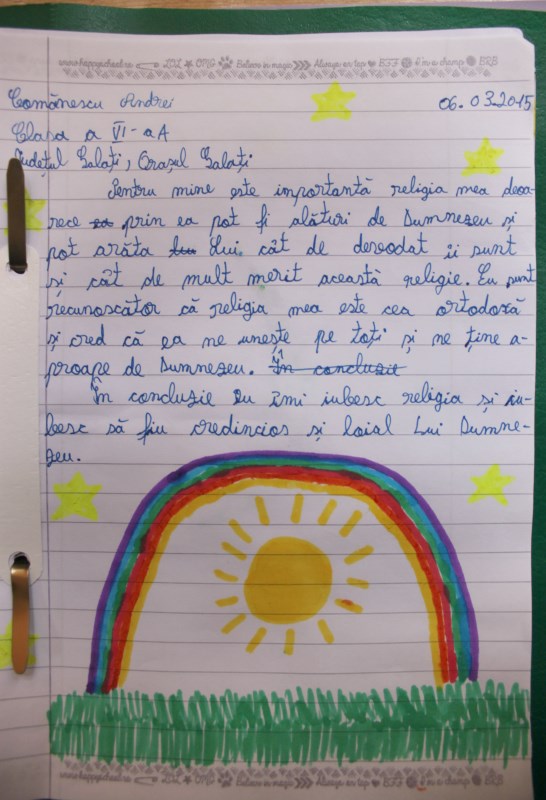 www.happyschool.ro LOL OMG Believe in magic Always on top BFF I'm a champ BRB
Comănescu Andrei 06.03.2015
Clasa a VI-a A
Județul Galați, Orașul Galați
Pentru mine este importantă religia mea deoa-
rece ea prin ea pot fi alături de Dumnezeu și
pot arăta lui Lui cât de devodat îi sunt
și cât de mult merit această religie. Eu sunt
recunoscător că religia mea este cea ortodoxă
și cred că ea ne unește pe toți și ne ține a-
proape de Dumnezeu. În concluzie
În concluzie Eu îmi iubesc religia și iu-
besc să fiu credincios și loial Lui Dumne-
zeu.
www.happyschool.ro LOL OMG Believe in magic Always on top BFF I'm a champ BRB